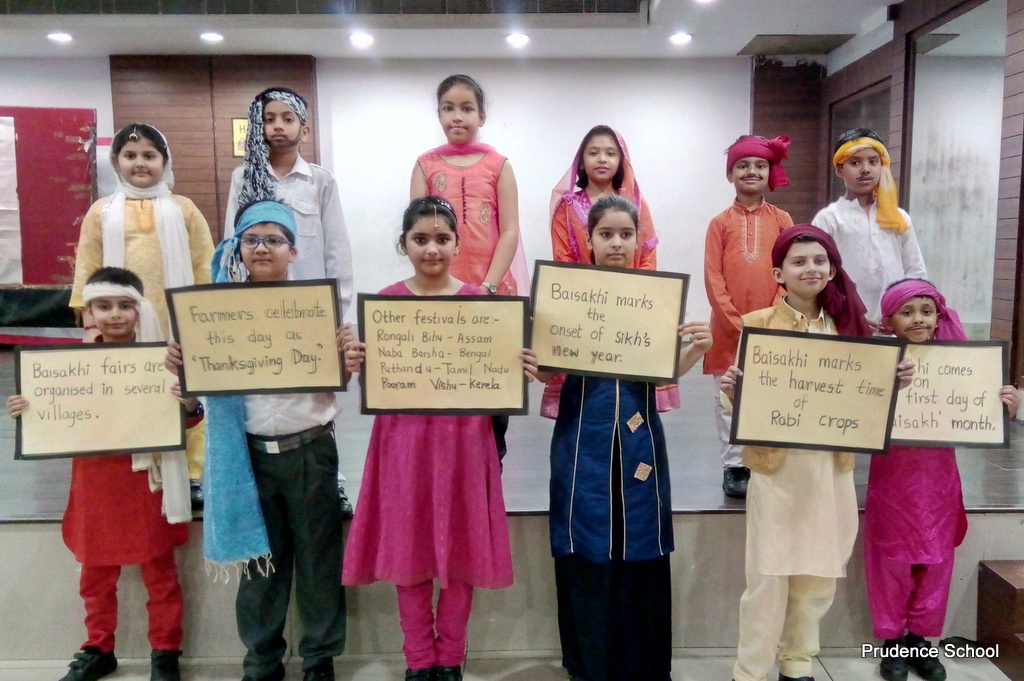 Baisakhi fairs are
organised in several
villages.
Farmers celebrate
this day as
"Thanksgiving Day."
Other festivals are:-
Rongali Bihu - Assam
Naba Barsha - Bengal
Puthandu - Tamil Nadu
Pooram Vishu - Kerela
Baisakhi marks
the
onset of Sikh's
new year.
Baisakhi marks
the harvest time
of
Rabi crops
hi comes
on
first day of
aisakh' month.
Prudence School